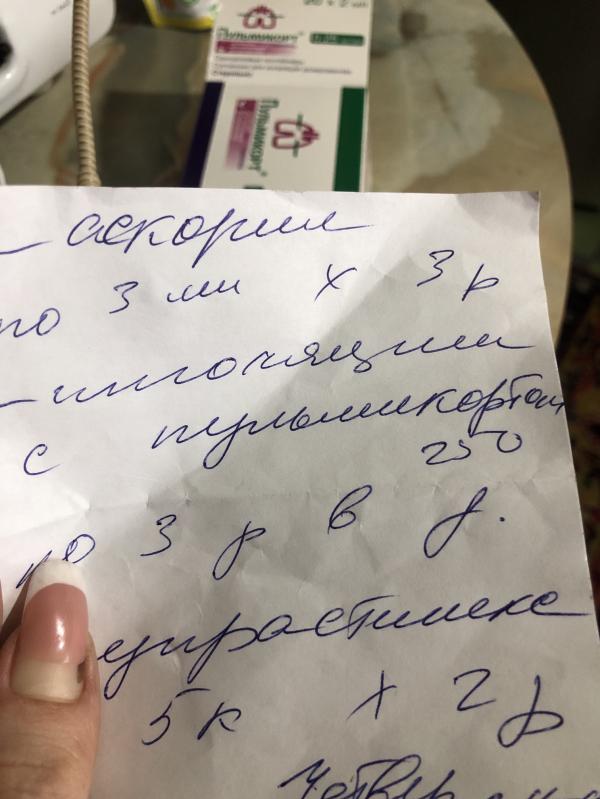 Пульмикорт
Пульмикорт
- аскорил
по 3 мл х 3 р
- ингаляции
с пульмикортом
250
по 3 р в д.
упрастинекс
5 к х 2 р